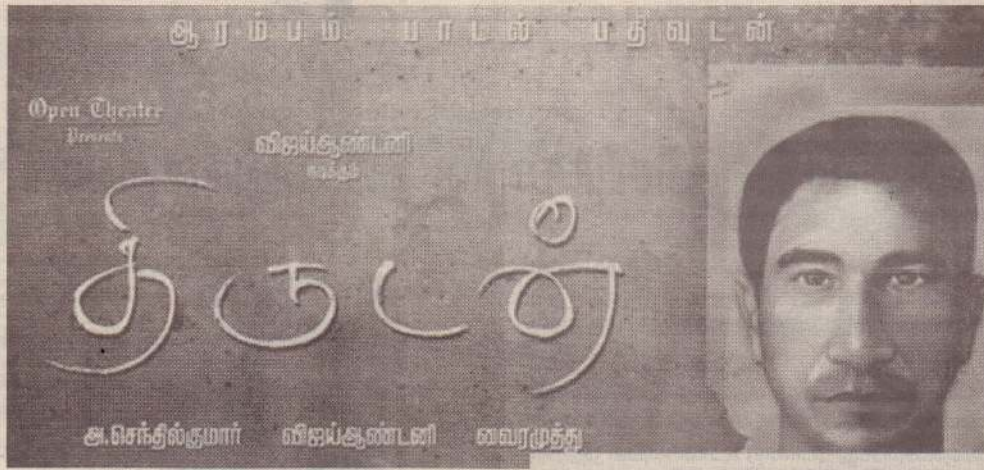 ஆரம்பம் பாடல் பதிவுடன்
Open Theater
Presents
விஜய்ஆண்டனி
நடிக்கும்
திருடன்
அ.செந்தில்குமார் விஜய்ஆண்டனி வைரமுத்து